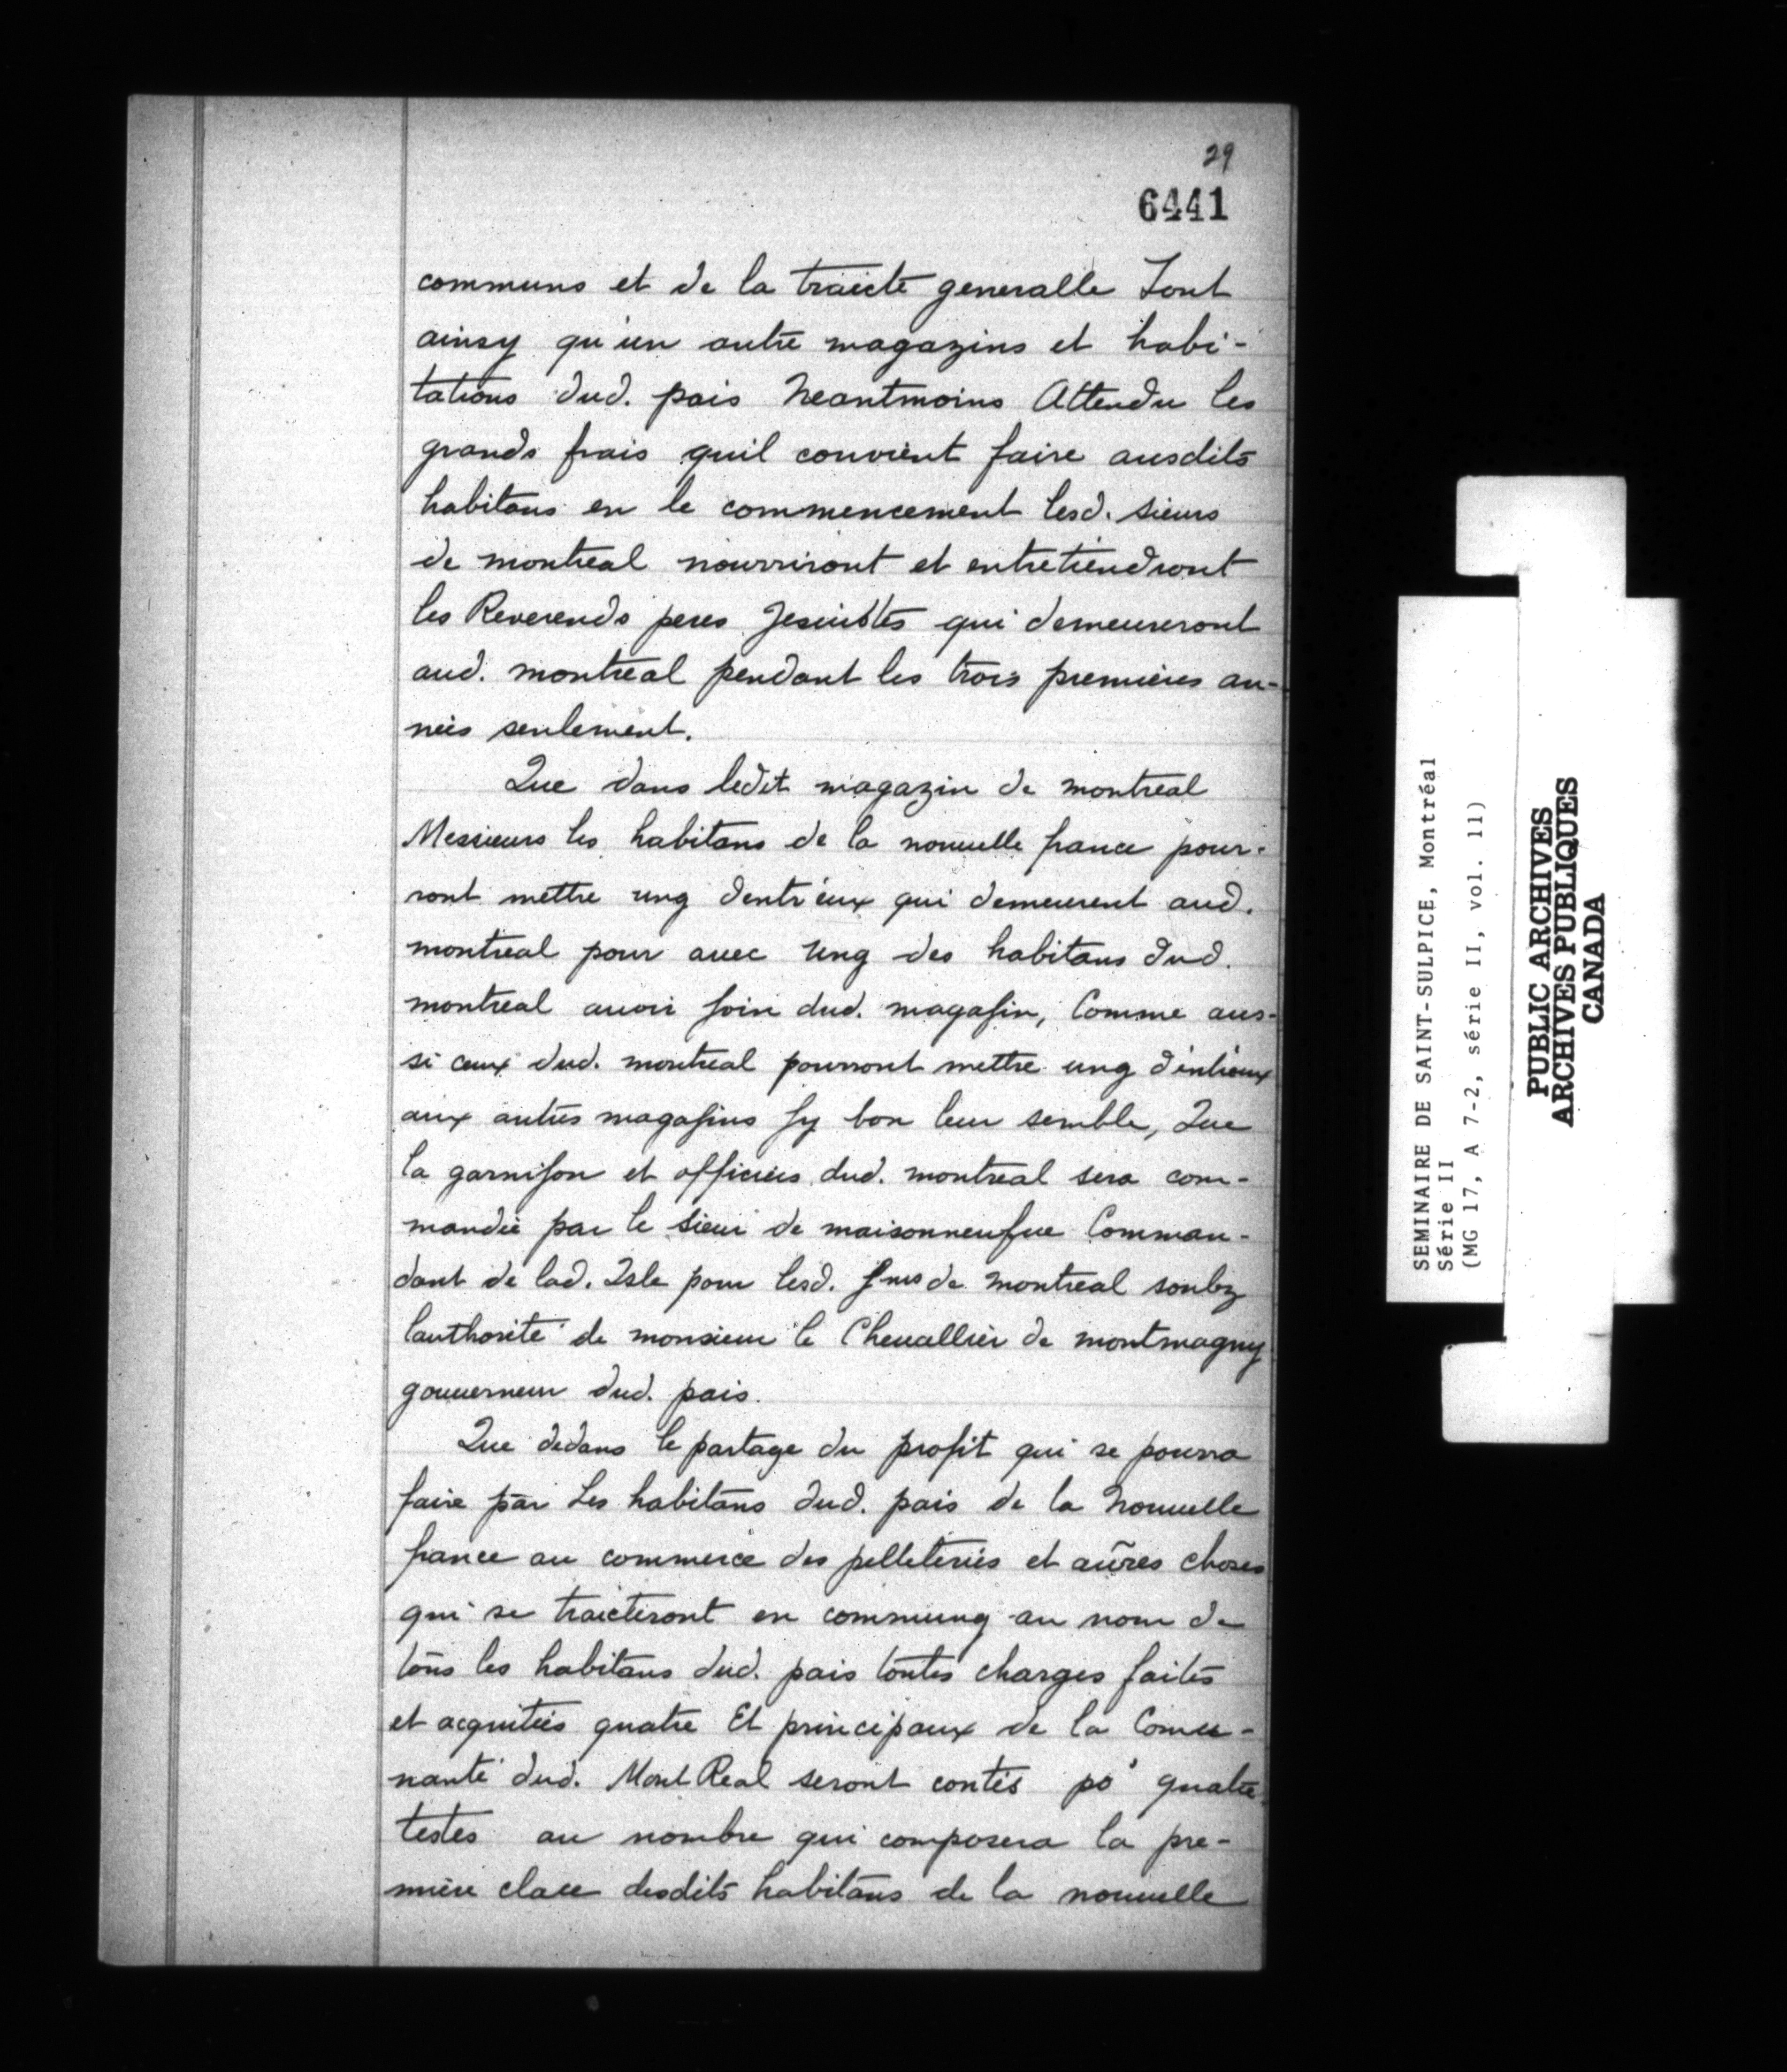 29
6441
communs et de la traicte generalle Tout
ainsy qu'un autre magazins et habi-
tations dud. pais Neantmoins Attendu les
grands frais quil convient faire ausdits
habitans en le commencement lesd. sieurs
de montreal nourriront et entretiendront
les Reverends peres Jesuistes qui demeureront
aud. montreal pendant les trois premieres an-
nées seulement.
Que dans ledit magazin de montreal
Messieurs les habitans de la nouuelle france pour-
ront mettre ung dentr'eux qui demeurent aud.
montreal pour auec Ung des habitans dud.
montreal auoir soin dud. magasin, Comme aus-
si ceux dud. montreal pourront mettre ung d'entreux
aux autres magasins sy bon leur semble, Que
la garnison et officiers dud. montreal sera com-
mandée par le sieur de maisonneufue Comman-
dant de lad. Isle pour lesd. srs de montreal soubz
lauthorité de monsieur le Cheuallier de montmagny
gouuerneur dud. pais.
Que dedans le partage du profit qui se pourra
faire par Les habitans dud. pais de la Nouuelle
france au commerce des pelleteries et aũres choses
qui se traicteront en commung au nom de
tous les habitans dud. pais toutes charges faites
et acquitées quatre Et principaux de la Comu-
nauté dud. Mont Real seront contés po' quatre
testes au nombre qui composera la pre-
mière clace desdits habitans de la nouuelle
SEMINAIRE DE SAINT-SULPICE, Montréal
Série II
(MG 17, A 7-2, série II, vol. 11)
PUBLIC ARCHIVES
ARCHIVES PUBLIQUES
CANADA